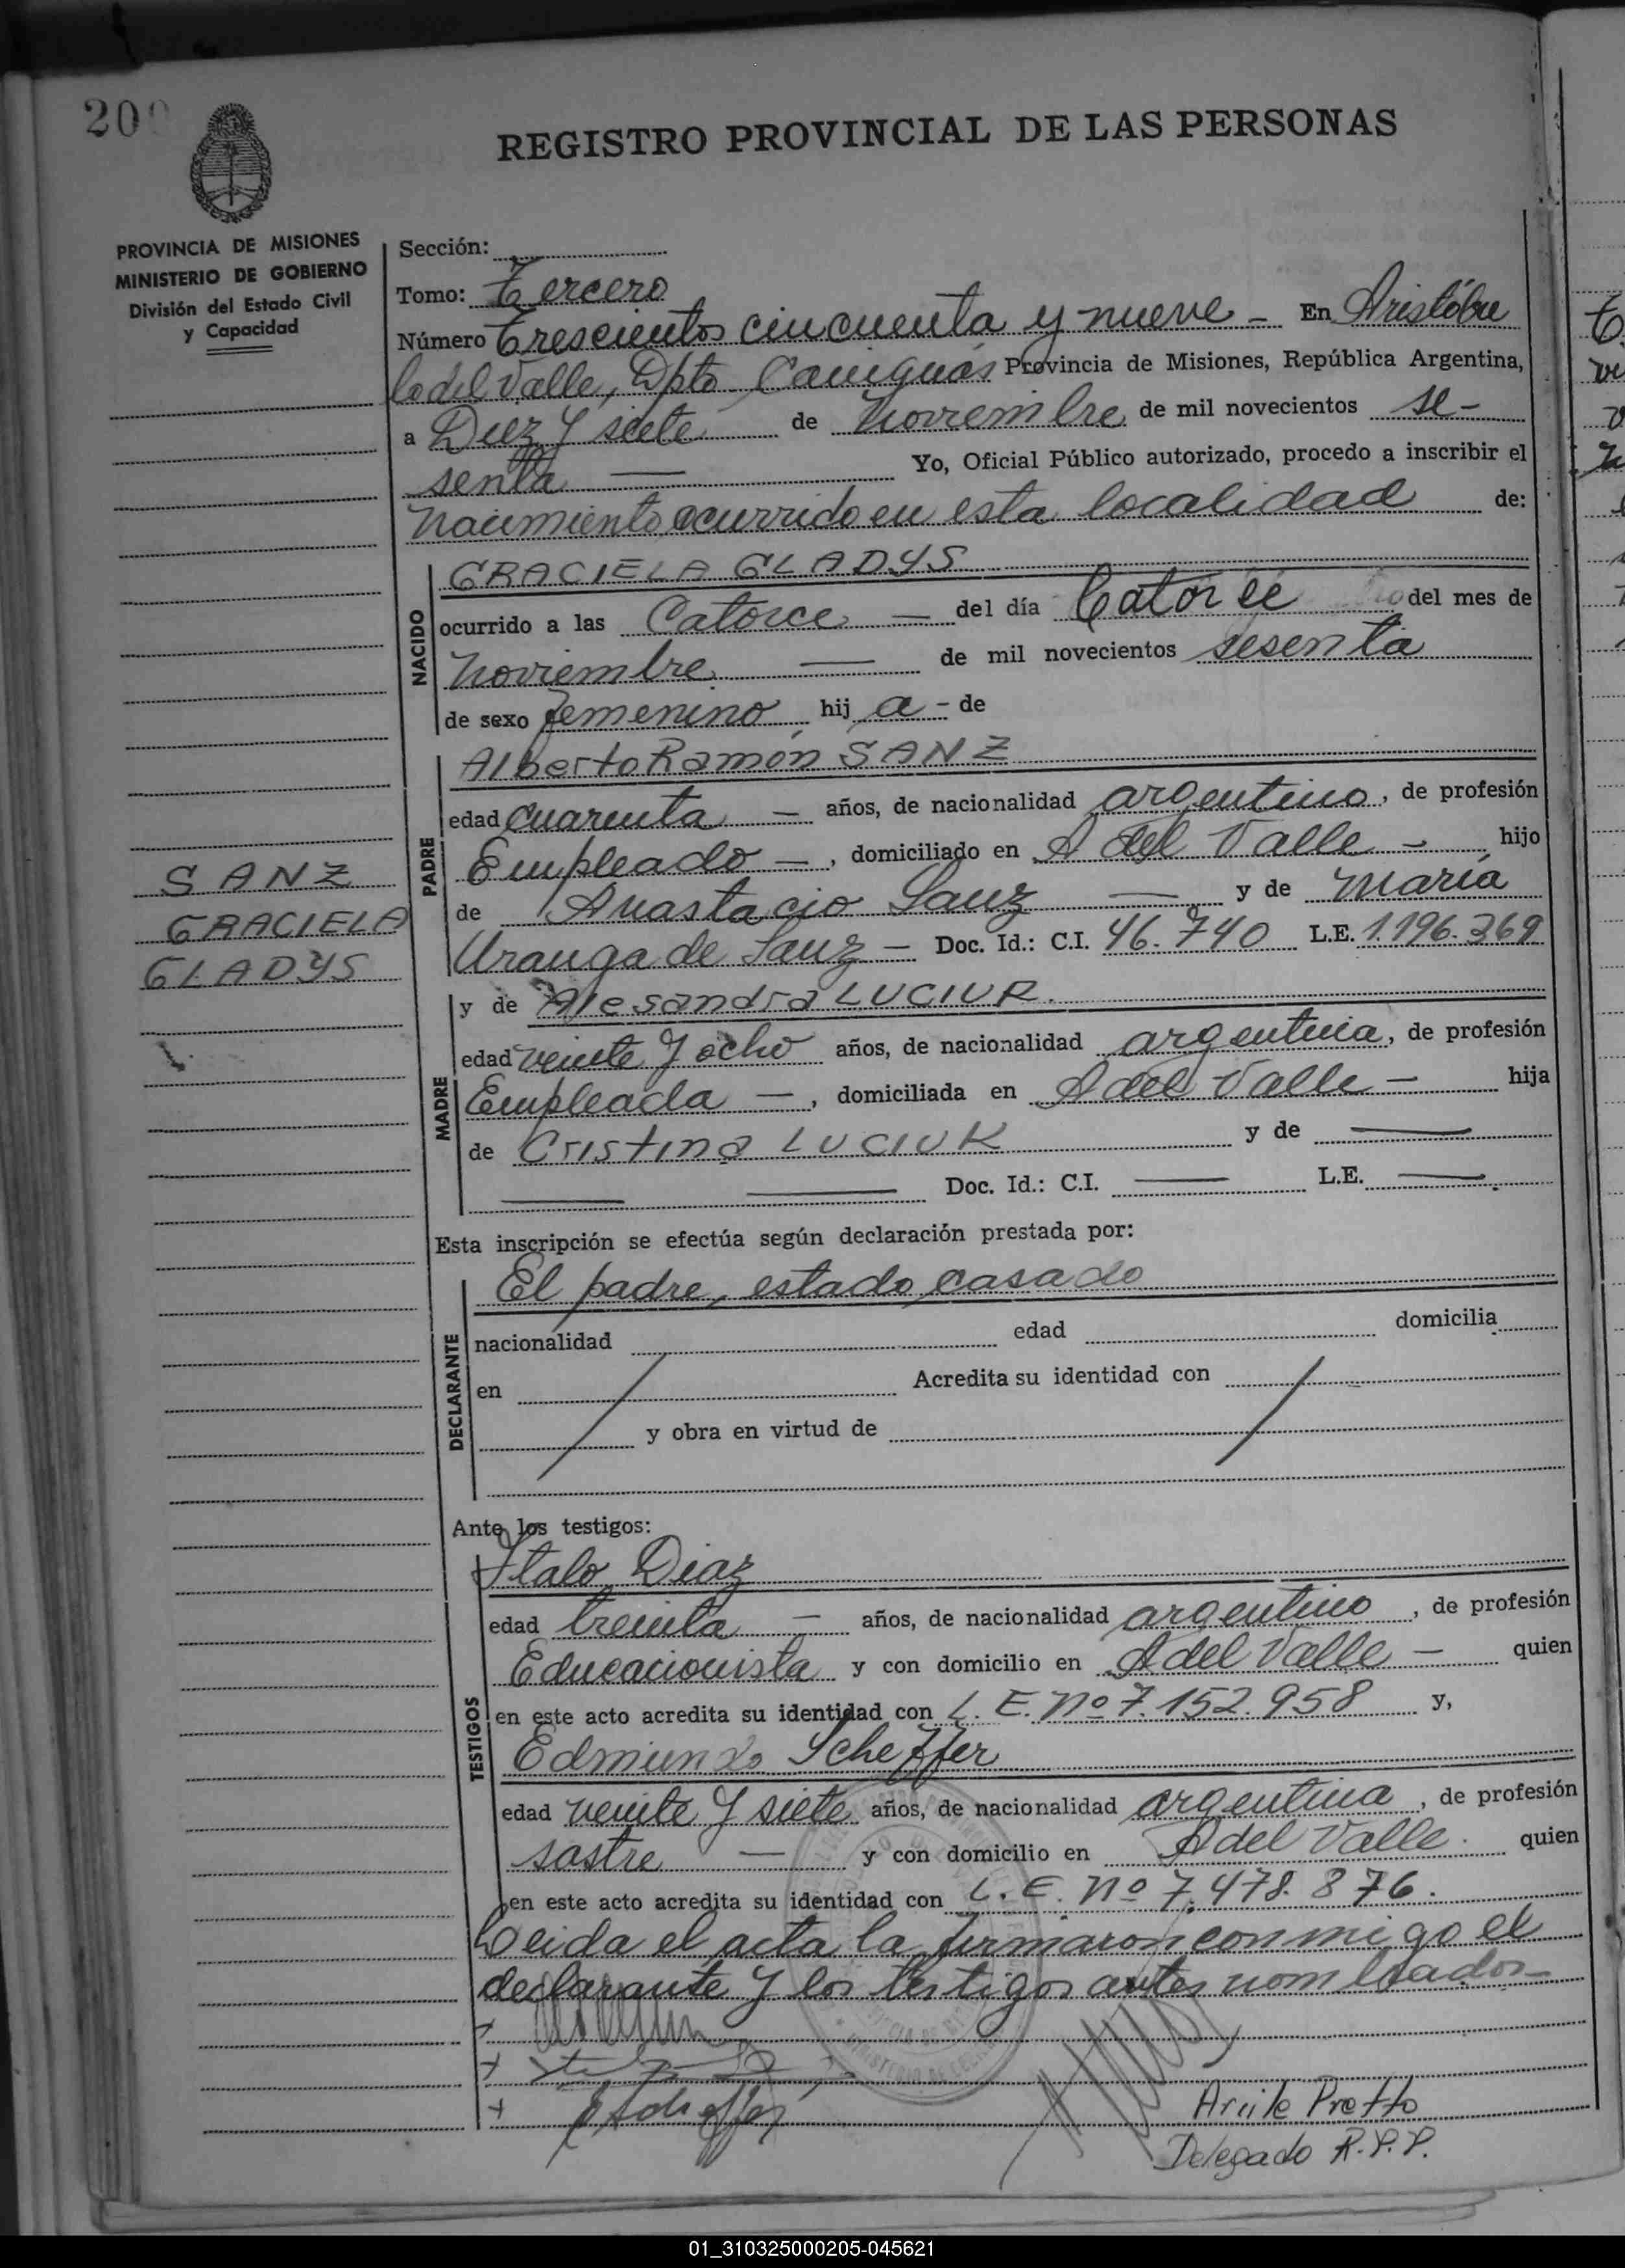 200
REGISTRO PROVINCIAL DE LAS PERSONAS
PROVINCIA DE MISIONES
MINISTERIO DE GOBIERNO
División del Estado Civil
y Capacidad
Sección:
Tomo: Tercero
Número Trescientos cincuenta y nueve - En Aristóbu
lo del Valle, Dpto Cainguás Provincia de Misiones, República Argentina,
a Diez y siete de Noviembre de mil novecientos se-
senta — Yo, Oficial Público autorizado, procedo a inscribir el
Nacimiento ocurrido en esta localidad de:
NACIDO
GRACIELA GLADYS
ocurrido a las Catorce — del día Catorce del mes de
Noviembre — de mil novecientos sesenta
de sexo femenino hij a - de
PADRE
Alberto Ramón SANZ
edad cuarenta — años, de nacionalidad argentino, de profesión
Empleado —, domiciliado en A del Valle - hijo
de Anastacio Sanz — y de María
Uranga de Sanz — Doc. Id.: C.I. 46.740 L.E. 1.196.369
SANZ
GRACIELA
GLADYS
MADRE
y de Alesandra LUCIUK.
edad veinte y ocho años, de nacionalidad argentina, de profesión
Empleada —, domiciliada en A del Valle — hija
de Cristina LUCIUK y de —
— — Doc. Id.: C.I. — L.E. —
Esta inscripción se efectúa según declaración prestada por:
DECLARANTE
El padre, estado casado
nacionalidad edad domicilia
en Acredita su identidad con
y obra en virtud de
Ante los testigos:
TESTIGOS
Italo Diaz
edad treinta — años, de nacionalidad argentino, de profesión
Educacionista y con domicilio en A del Valle — quien
en este acto acredita su identidad con L. E. Nº 7.152.958 y,
Edmundo Scheffer
edad veinte y siete años, de nacionalidad argentina, de profesión
sastre — y con domicilio en A del Valle. quien
en este acto acredita su identidad con L. E. Nº 7.478.876.
Leida el acta la firmaron conmigo el
declarante y los testigos antes nombrados-
Ariile Pretto
Delegado R.P.P.
01_310325000205-045621